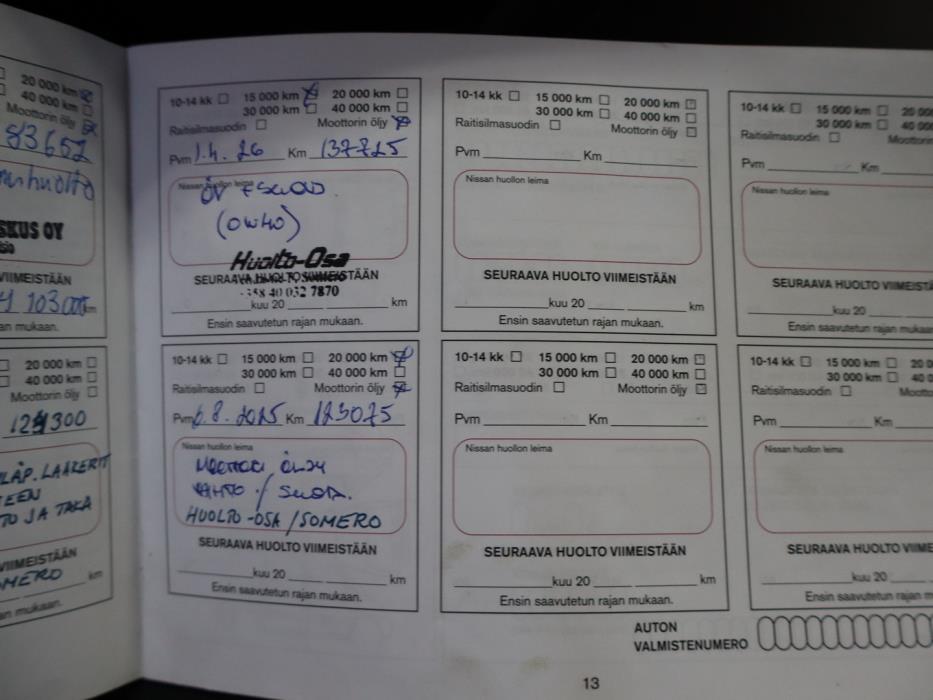 20 000 km
40 000 km
Moottorin öljy
83652
SKUS OY
VIIMEISTÄÄN
103000 km
an mukaan.
20 000 km
40 000 km
Moottorin öljy
LÄP. LAAKERIT
TEEN
TO JA TAKA
VIIMEISTÄÄN
OMERO km
an mukaan.
10-14 kk 15 000 km 20 000 km
30 000 km 40 000 km
Raitisilmasuodin Moottorin öljy
Pvm 1.4. 26 Km 137725
Nissan huollon leima
(0W40)
Huolto-Osa
SEURAAVA HUOLTO VIIMEISTÄÄN
7870
kuu 20 km
Ensin saavutetun rajan mukaan.
10-14 kk 15 000 km 20 000 km
30 000 km 40 000 km
Raitisilmasuodin Moottorin öljy
Pvm 6.8. 2025 Km 123075
Nissan huollon leima
HUOLTO-OSA/SOMERO
SEURAAVA HUOLTO VIIMEISTÄÄN
kuu 20 km
Ensin saavutetun rajan mukaan.
10-14 kk 15 000 km 20 000 km
30 000 km 40 000 km
Raitisilmasuodin Moottorin öljy
Pvm Km
Nissan huollon leima
SEURAAVA HUOLTO VIIMEISTÄÄN
kuu 20 km
Ensin saavutetun rajan mukaan.
10-14 kk 15 000 km 20 000 km
30 000 km 40 000 km
Raitisilmasuodin Moottorin öljy
Pvm Km
Nissan huollon leima
SEURAAVA HUOLTO VIIMEISTÄÄN
kuu 20 km
Ensin saavutetun rajan mukaan.
10-14 kk 15 000 km 20 00
30 000 km 40 00
Raitisilmasuodin Moottorin
Pvm Km
Nissan huollon leima
SEURAAVA HUOLTO VIIMEIST
kuu 20
Ensin saavutetun rajan mukaa
10-14 kk 15 000 km 20 0
30 000 km 40 0
Raitisilmasuodin Mootto
Pvm Km
Nissan huollon leima
SEURAAVA HUOLTO VIIME
kuu 20
Ensin saavutetun rajan m
AUTON
VALMISTENUMERO
13